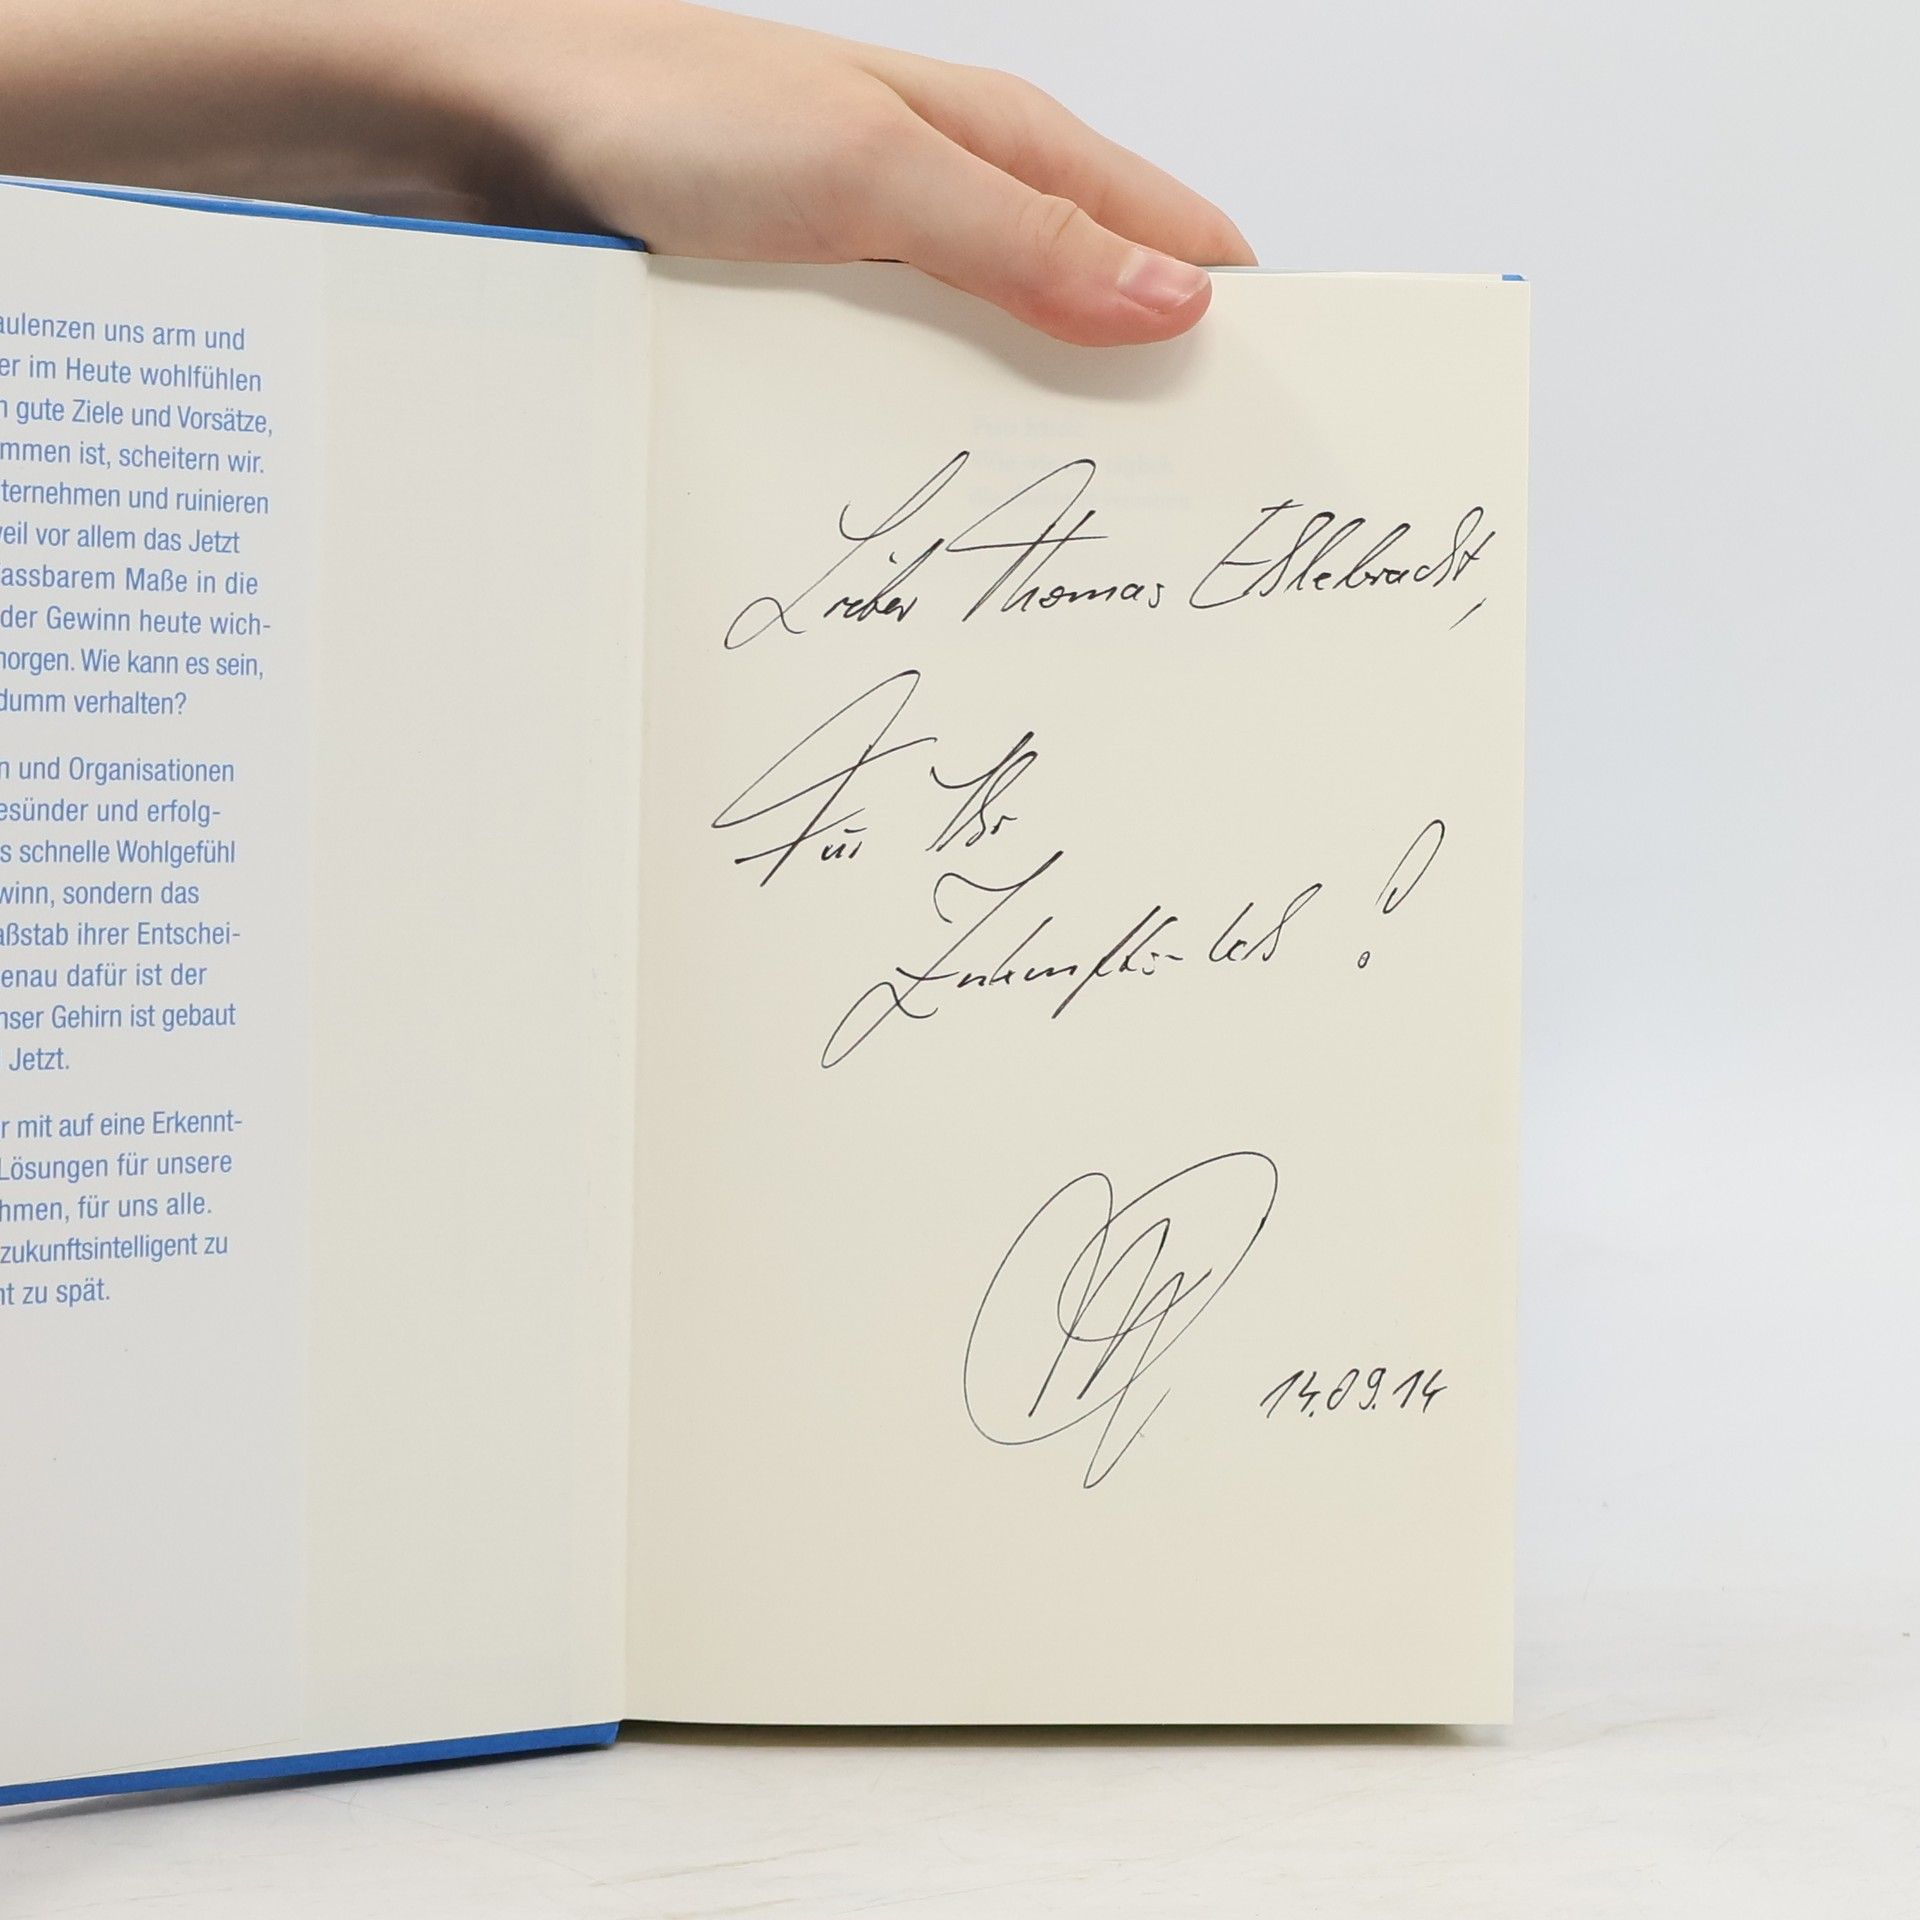 aulenzen uns arm und
er im Heute wohlfühlen
n gute Ziele und Vorsätze,
mmen ist, scheitern wir.
ternehmen und ruinieren
weil vor allem das Jetzt
fassbarem Maße in die
der Gewinn heute wich-
morgen. Wie kann es sein,
dumm verhalten?
n und Organisationen
esünder und erfolg-
s schnelle Wohlgefühl
winn, sondern das
aßstab ihrer Entschei-
enau dafür ist der
nser Gehirn ist gebaut
Jetzt.
r mit auf eine Erkennt-
Lösungen für unsere
hmen, für uns alle.
zukunftsintelligent zu
ht zu spät.
Lieber Thomas
Für Ihr
Zukunfts-Ich!
14.09.14